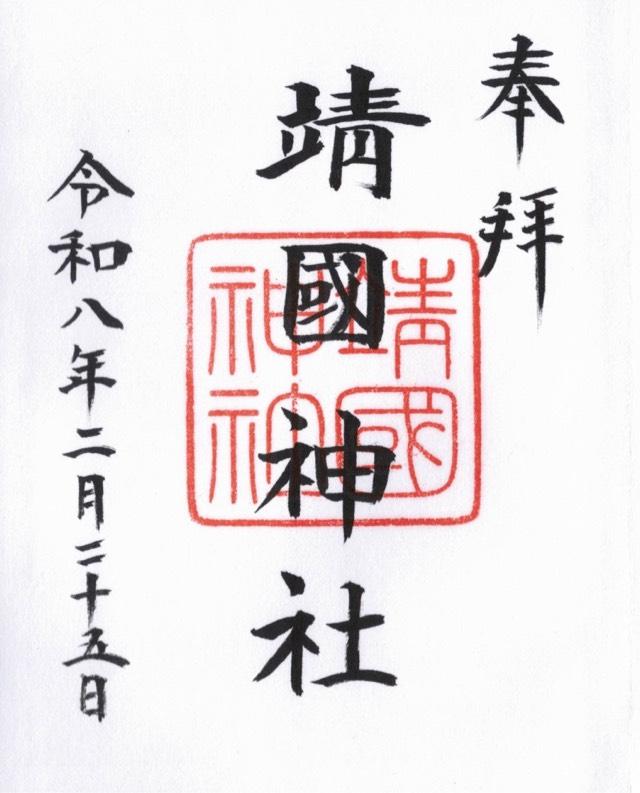 奉拝
靖國神社
靖國
神社
令和八年二月二十五日